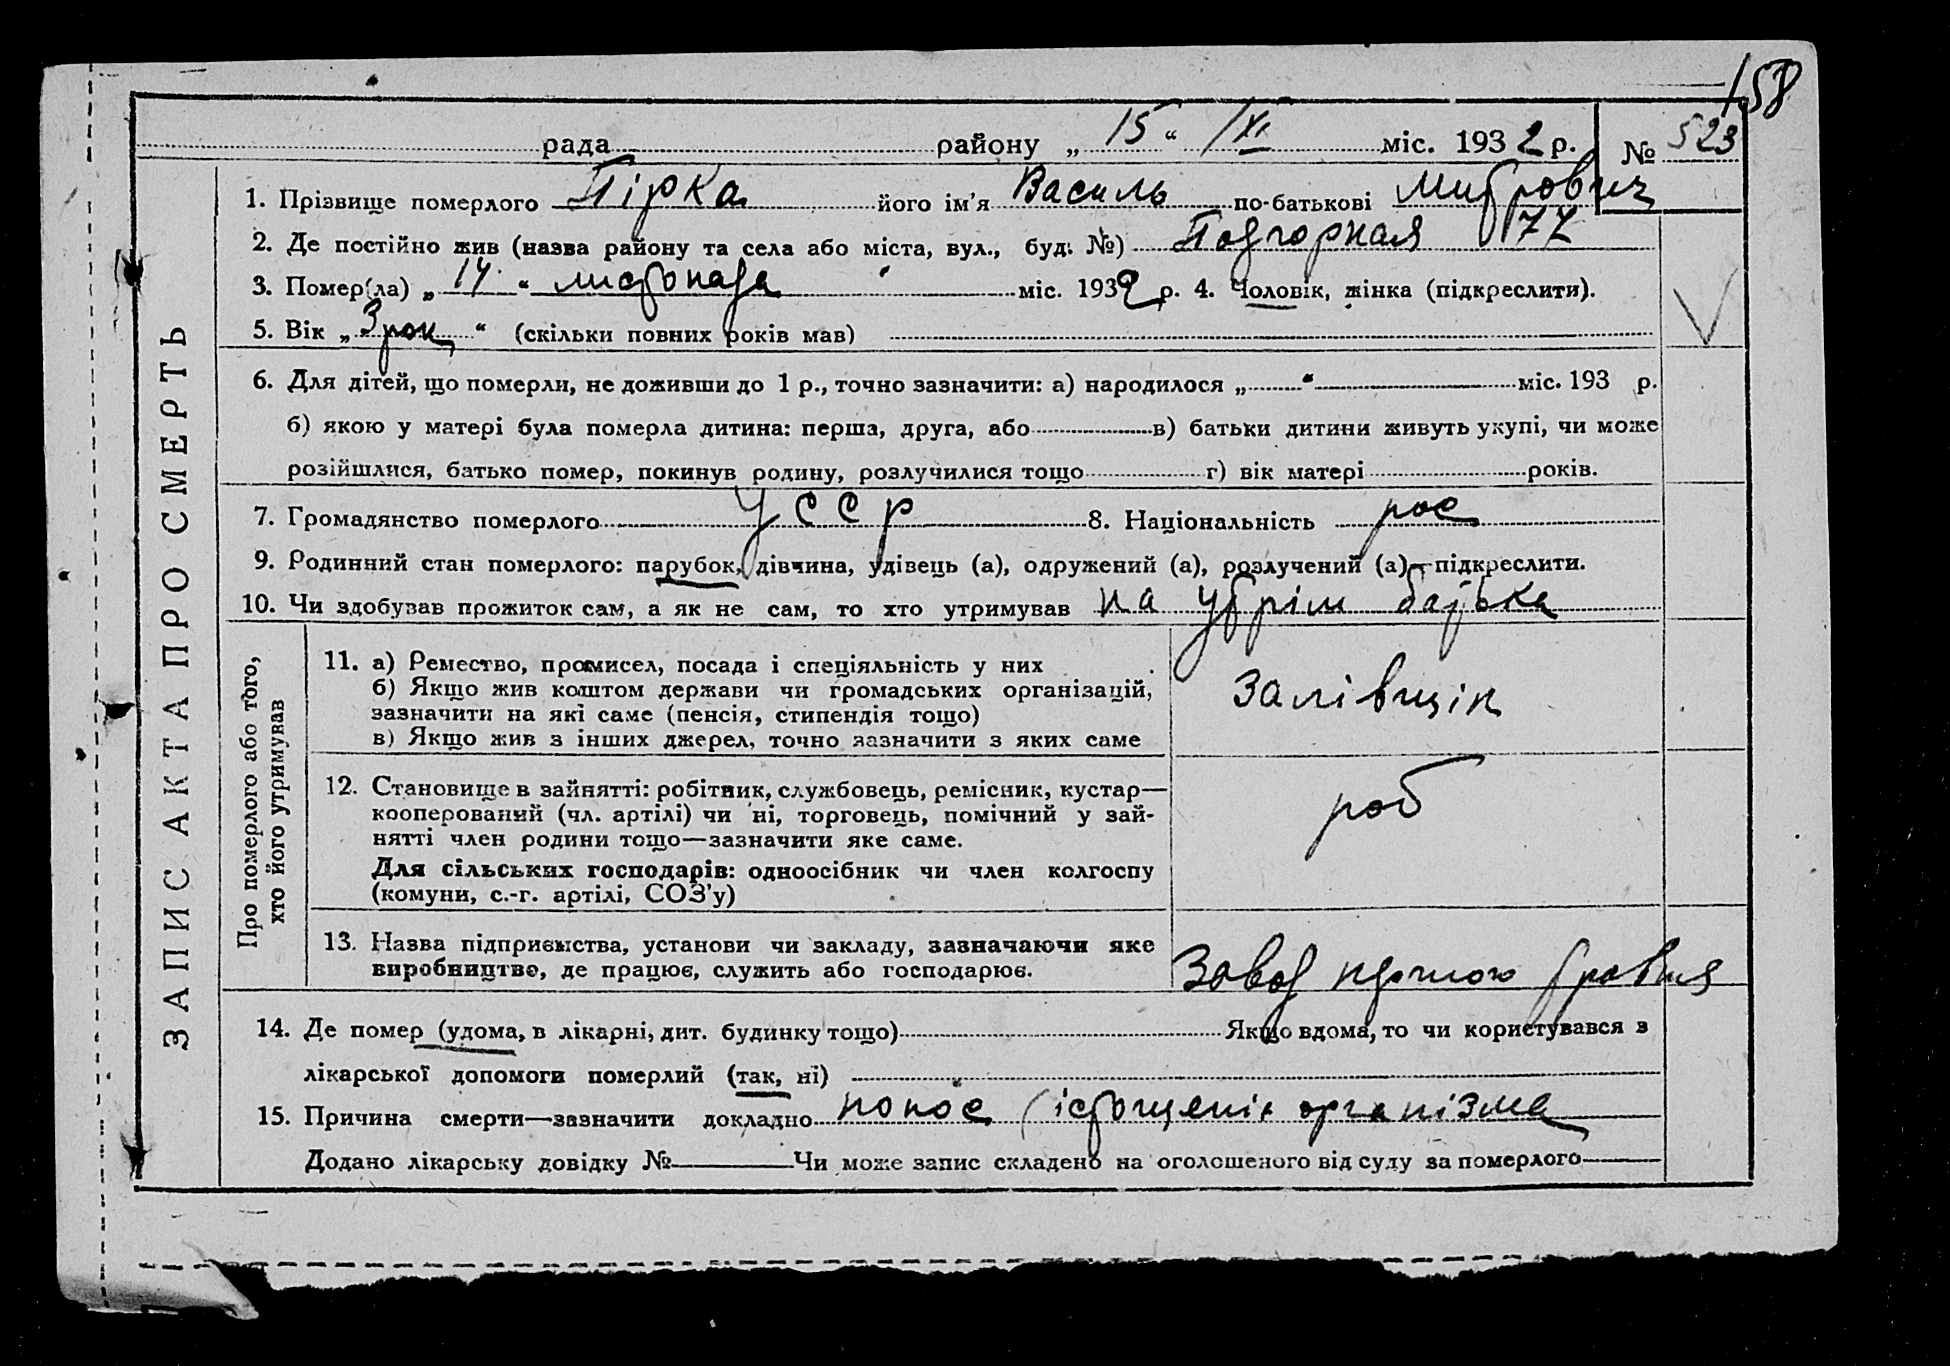 158
рада району „ 15 “ /XI міс. 1932 р. № 523
1. Прізвище померлого Пірка його ім’я Василь по-батькові
2. Де постійно жив (назва району та села або міста, вул., буд. №) Подгорная 77
3. Помер(ла) „ 14 “ листопада міс. 1932 р. 4. Чоловік, жінка (підкреслити).
5. Вік „ 3 рок “ (скільки повних років мав)
6. Для дітей, що померли, не доживши до 1 р., точно зазначити: а) народилося „ “ міс. 193 р.
б) якою у матері була померла дитина: перша, друга, або в) батьки дитини живуть укупі, чи може
розійшлися, батько помер, покинув родину, розлучилися тощо г) вік матері років.
7. Громадянство померлого УССР 8. Національність рос
9. Родинний стан померлого: парубок, дівчина, удівець (а), одружений (а), розлучений (а)—підкреслити.
10. Чи здобував прожиток сам, а як не сам, то хто утримував на утрім батька
ЗАПИС АКТА ПРО СМЕРТЬ
Про померлого або того,
хто його утримував
11. а) Ремество, промисел, посада і спеціяльність у них
б) Якщо жив коштом держави чи громадських організацій,
зазначити на які саме (пенсія, стипендія тощо)
в) Якщо жив з інших джерел, точно зазначити з яких саме
Залівщік
12. Становище в зайнятті: робітник, службовець, ремісник, кустар—
кооперований (чл. артілі) чи ні, торговець, помічний у зай-
нятті член родини тощо—зазначити яке саме.
Для сільських господарів: одноосібник чи член колгоспу
(комуни, с.-г. артілі, СОЗ’у)
роб
13. Назва підприємства, установи чи закладу, зазначаючи яке
виробництво, де працює, служить або господарює.
Завод
14. Де помер (удома, в лікарні, дит. будинку тощо) Якщо вдома, то чи користувався з
лікарської допомоги померлий (так, ні)
15. Причина смерти—зазначити докладно понос (істощеніе організма
Додано лікарську довідку № Чи може запис складено на оголошеного від суду за померлого